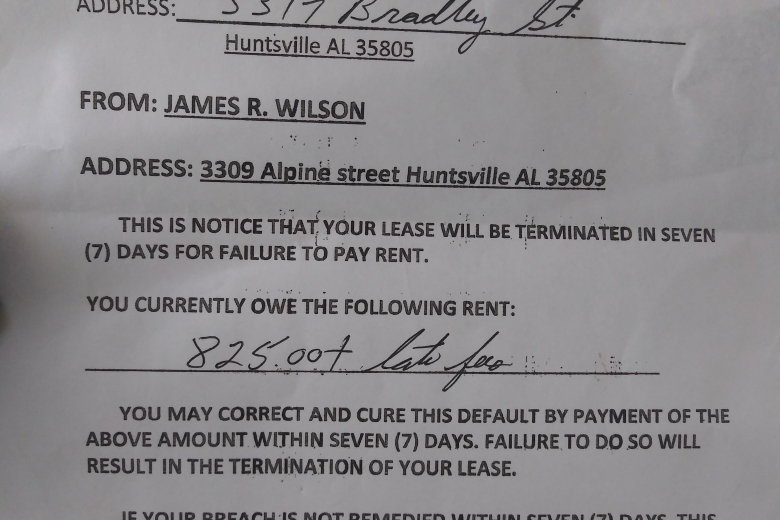 ADDRESS: 3317 Bradley St.
Huntsville AL 35805
FROM: JAMES R. WILSON
ADDRESS: 3309 Alpine street Huntsville AL 35805
THIS IS NOTICE THAT YOUR LEASE WILL BE TERMINATED IN SEVEN
(7) DAYS FOR FAILURE TO PAY RENT.
YOU CURRENTLY OWE THE FOLLOWING RENT:
825.00 + late fees
YOU MAY CORRECT AND CURE THIS DEFAULT BY PAYMENT OF THE
ABOVE AMOUNT WITHIN SEVEN (7) DAYS. FAILURE TO DO SO WILL
RESULT IN THE TERMINATION OF YOUR LEASE.
IF YOUR BREACH IS NOT REMEDIED WITHIN SEVEN (7) DAYS, THIS